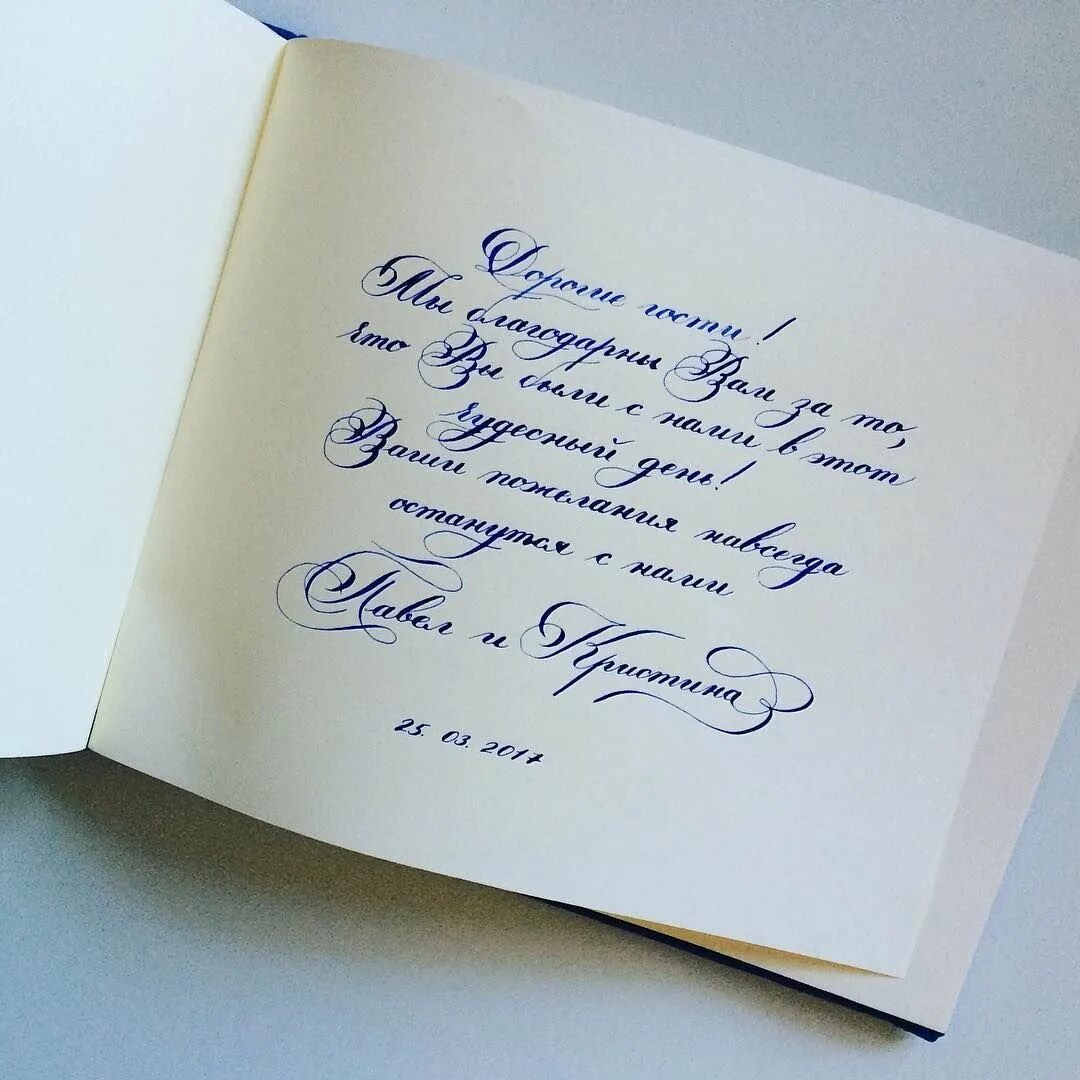 Дорогие гости!
Мы благодарны Вам за то,
что Вы были с нами в этот
чудесный день!
Ваши пожелания навсегда
останутся с нами
Павел и Кристина
25.03.2017